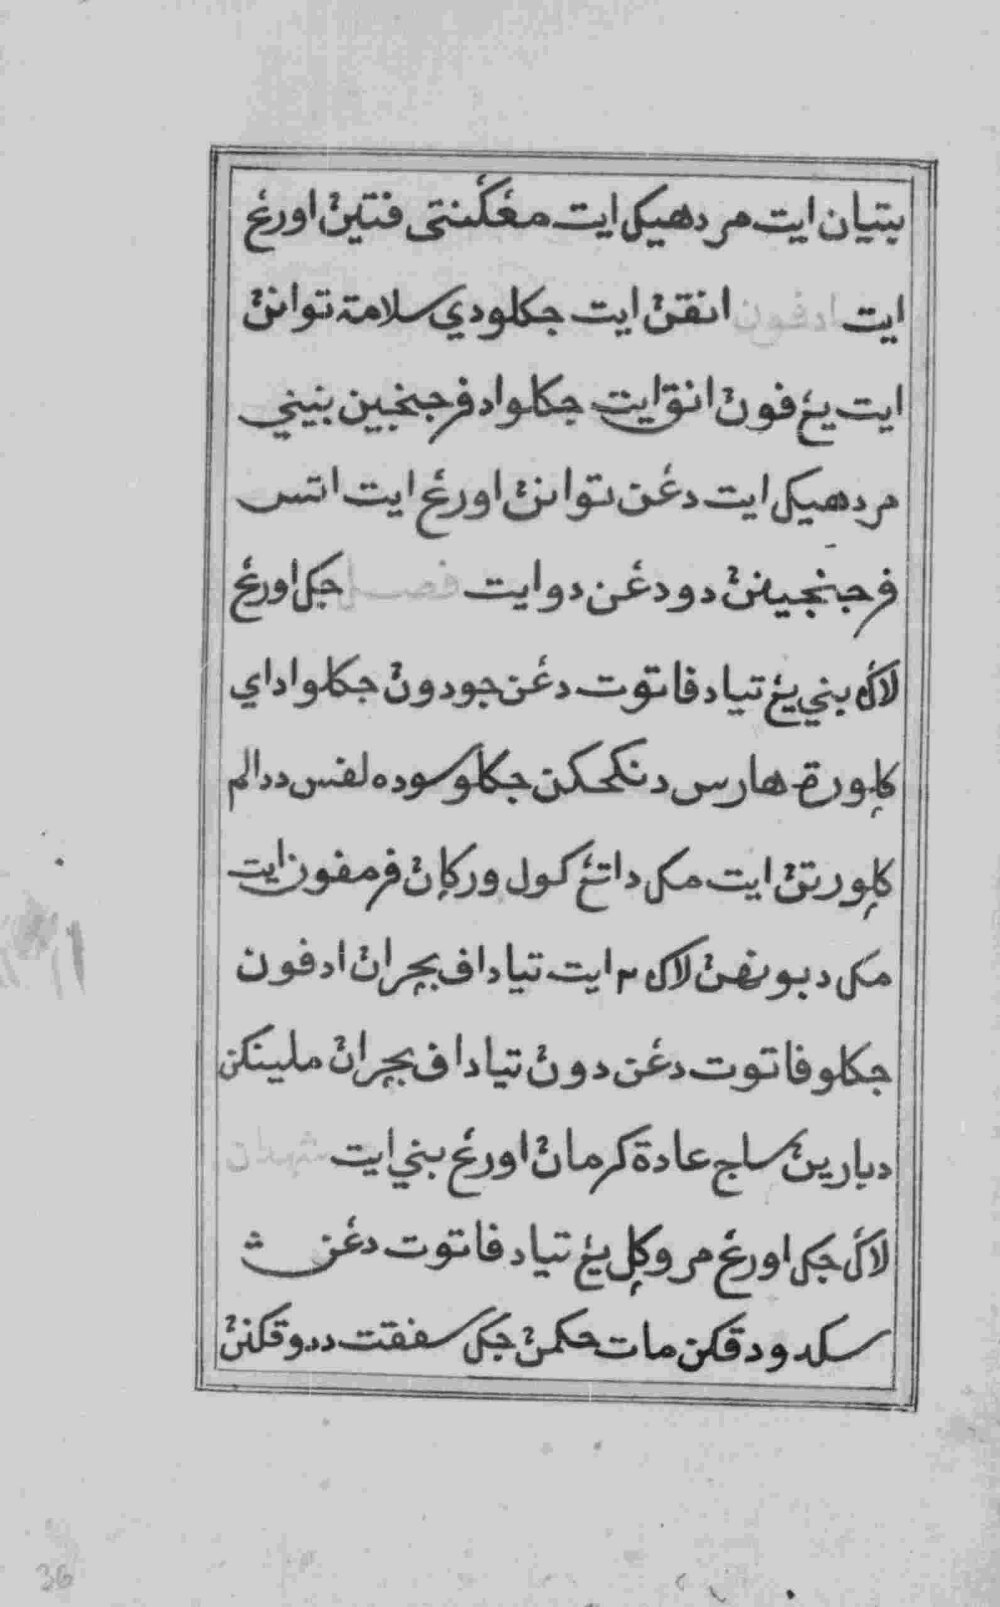 بتيان ايت مردهيکی ايت مڠݢنتی فتين۲ اورڠ
ايت ادفون انقن۲ ايت جکلودي سلامة توانن۲
ايت يڠ فون۲ انق ايت جکلو اد فرجنجين بنيني
مردهيکی ايت دڠن توانن۲ اورڠ ايت اتس
فرجنجينن۲ دودڠن دوايت فصل جکی اورڠ
لاکی بني يڠ تياد فاتوت دڠن جودون۲ جکلو اداي
کلورݢ هارس دنکحکن جکلو سوده لفس ددالم
کلورݢن۲ ايت مک داتڠ کول ورکان۲ فرمفون ايت
مک دبونهن۲ لاکی۲ ايت تياد اف بچران۲ ادفون
جکلو فاتوت دڠن دون۲ تياداف بچران۲ ملينکن
دبارين۲ ساج عادة کرمان۲ اورڠ بني ايت شهدان
لاکی جکی اورڠ مروکل يڠ تياد فاتوت دڠن ث
سکدودقکن مات حکمن۲ جکی سفقت ددوقکنن۲
36